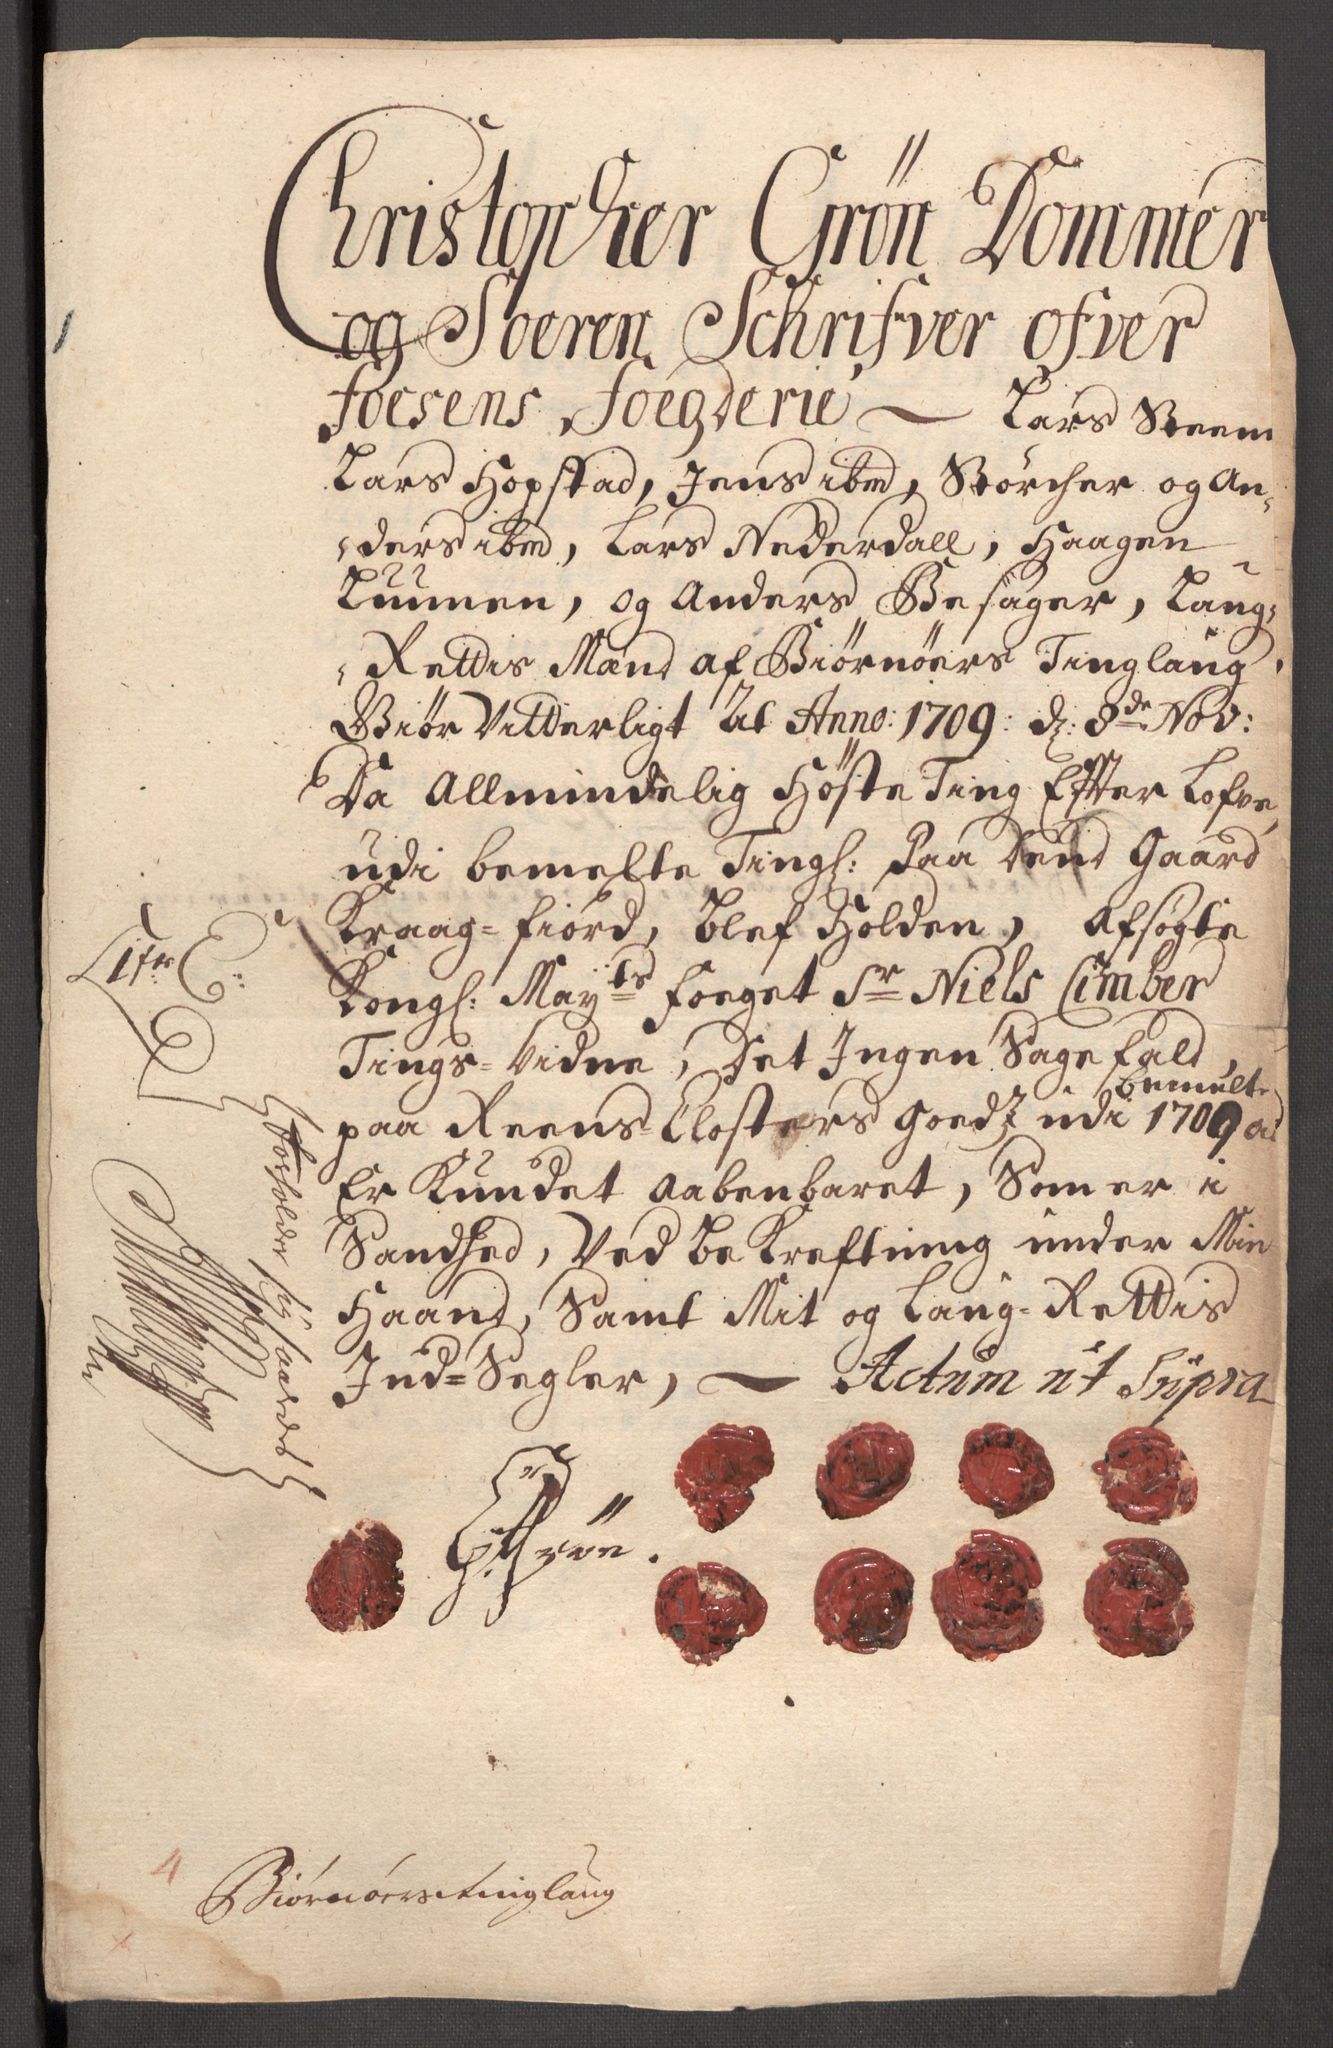 Christopher Grön Dommer
og Soeren Schrifver ofver
foesens foegderie — Lars Steem
Lars Hopstad, Jens ibm, Störcher og An-
-ders ibm, Lars Nederdall, Haagen
Luumen, og Anders Besager, Laug-
-Rettis Mænd af Biörnöers Tinglaug.
Giör Vitterligt At Anno: 1709: d: 8de Nov:
Da Allmindelig Höste Ting Effter Lofven
udi bemelte Tingl: Paa Dend Gaard
Kraag-fiord, blef Holden, Afsögte
Kongl: Mayts foeget Sr Niels Cimber
Tings-Vidne, Det Ingen Sagefald
bemelte
paa Reens-Closters Goedz udi 1709 ar
Er Kundet Aabenbaret, Som er i
Sandhed, Ved bekreftning under Min
Haand, Samt Mit og Laug-Rettis
Ind-Segler, — Actum ut Supra
CGrön.
Litr E:
forholder sig saaledes
4
Biörnöers tinglaug